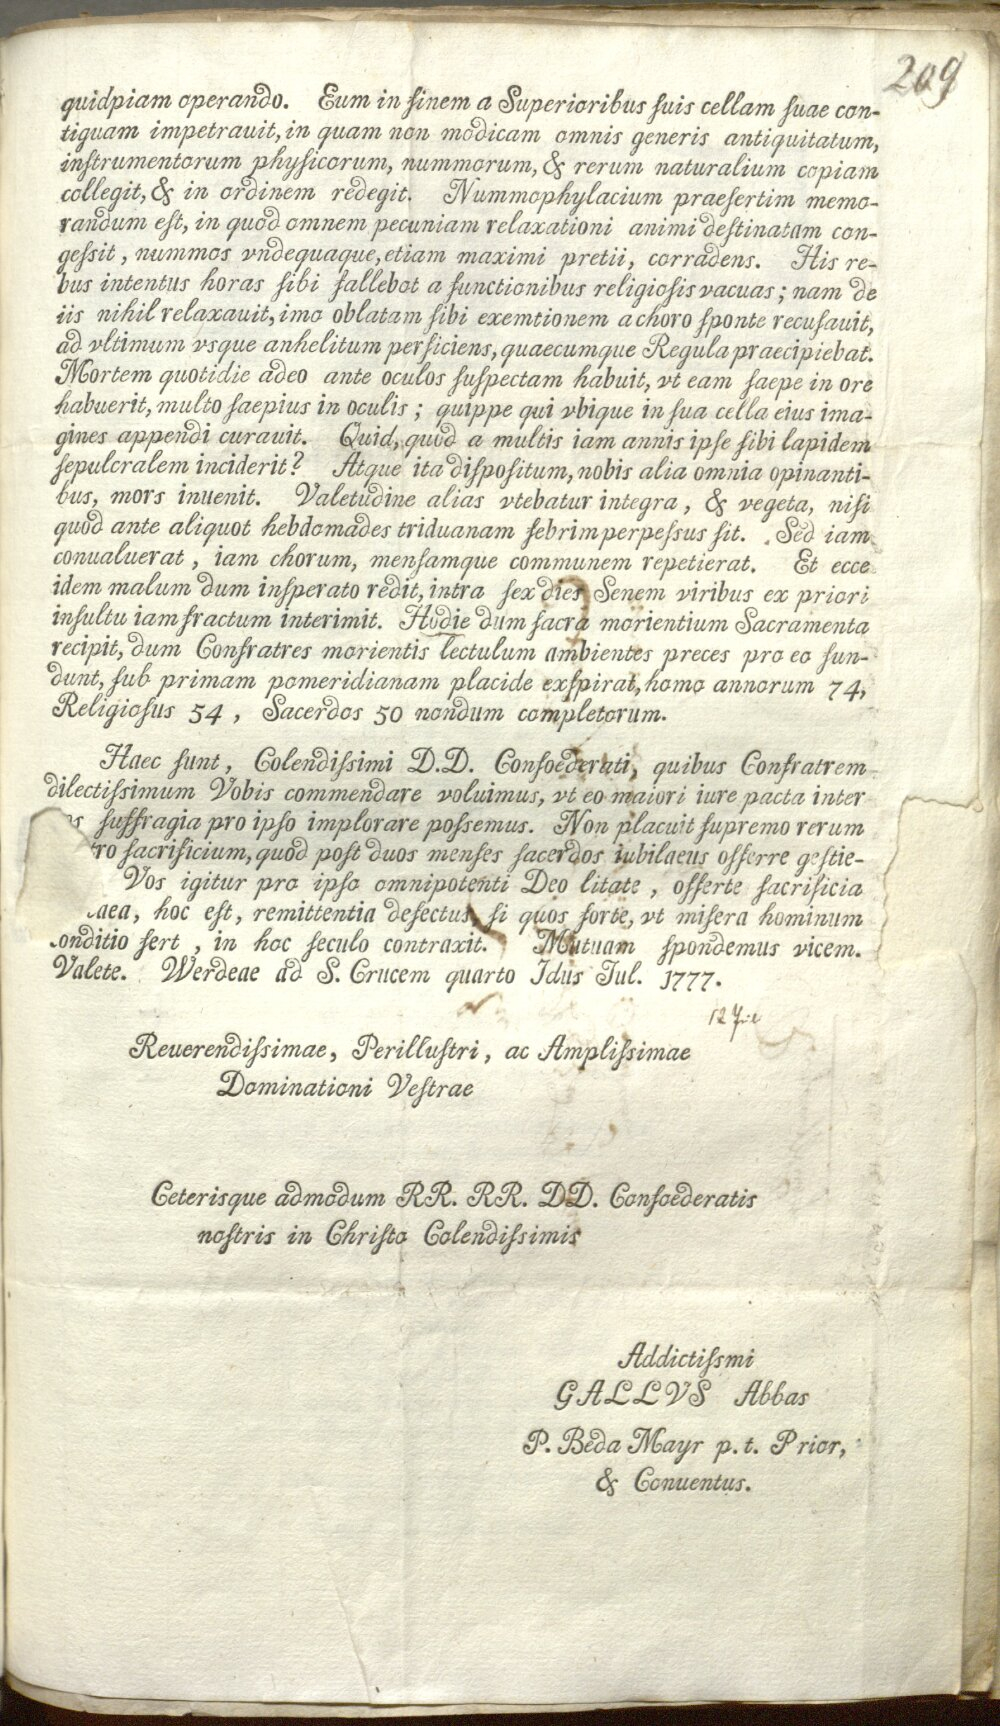 209
quidpiam operando. Eum in finem a Superioribus suis cellam suae con-
tiguam impetrauit, in quam non modicam omnis generis antiquitatum,
instrumentorum physicorum, nummorum, & rerum naturalium copiam
collegit, & in ordinem redegit. Nummophylacium praesertim memo-
randum est, in quod omnem pecuniam relaxationi animi destinatam con-
gessit, nummos vndequaque, etiam maximi pretii, corradens. His re-
bus intentus horas sibi fallebat a functionibus religiosis vacuas; nam de
iis nihil relaxauit, imo oblatam sibi exemtionem a choro sponte recusauit,
ad vltimum vsque anhelitum perficiens, quaecumque Regula praecipiebat.
Mortem quotidie adeo ante oculos suspectam habuit, vt eam saepe in ore
habuerit, multo saepius in oculis; quippe qui vbique in sua cella eius ima-
gines appendi curauit. Quid, quod a multis iam annis ipse sibi lapidem
sepulcralem inciderit? Atque ita dispositum, nobis alia omnia opinanti-
bus, mors inuenit. Valetudine alias vtebatur integra, & vegeta, nisi
quod ante aliquot hebdomades triduanam febrim perpessus sit. Sed iam
conualuerat, iam chorum, mensamque communem repetierat. Et ecce
idem malum dum insperato redit, intra sex dies Senem viribus ex priori
insultu iam fractum interimit. Hodie dum sacra morientium Sacramenta
recipit, dum Confratres morientis lectulum ambientes preces pro eo fun-
dunt, sub primam pomeridianam placide exspirat, homo annorum 74,
Religiosus 54, Sacerdos 50 nondum completorum.
Haec sunt, Colendissimi D.D. Confoederati, quibus Confratrem
dilectissimum Vobis commendare voluimus, vt eo maiori iure pacta inter
suffragia pro ipso implorare possemus. Non placuit supremo rerum
sacrificium, quod post duos menses sacerdos iubilaeus offerre gestie-
Vos igitur pro ipso omnipotenti Deo litate, offerte sacrificia
hoc est, remittentia defectus, si quos forte, vt misera hominum
onditio fert, in hoc seculo contraxit. Mutuam spondemus vicem.
Valete. Werdeae ad S. Crucem quarto Idus Jul. 1777.
12
Reuerendissimae, Perillustri, ac Amplissimae
Dominationi Vestrae
Ceterisque admodum RR. RR. DD. Confoederatis
nostris in Christo Colendissimis
Addictissmi
GALLVS Abbas
P. Beda Mayr p. t. Prior,
& Conuentus.